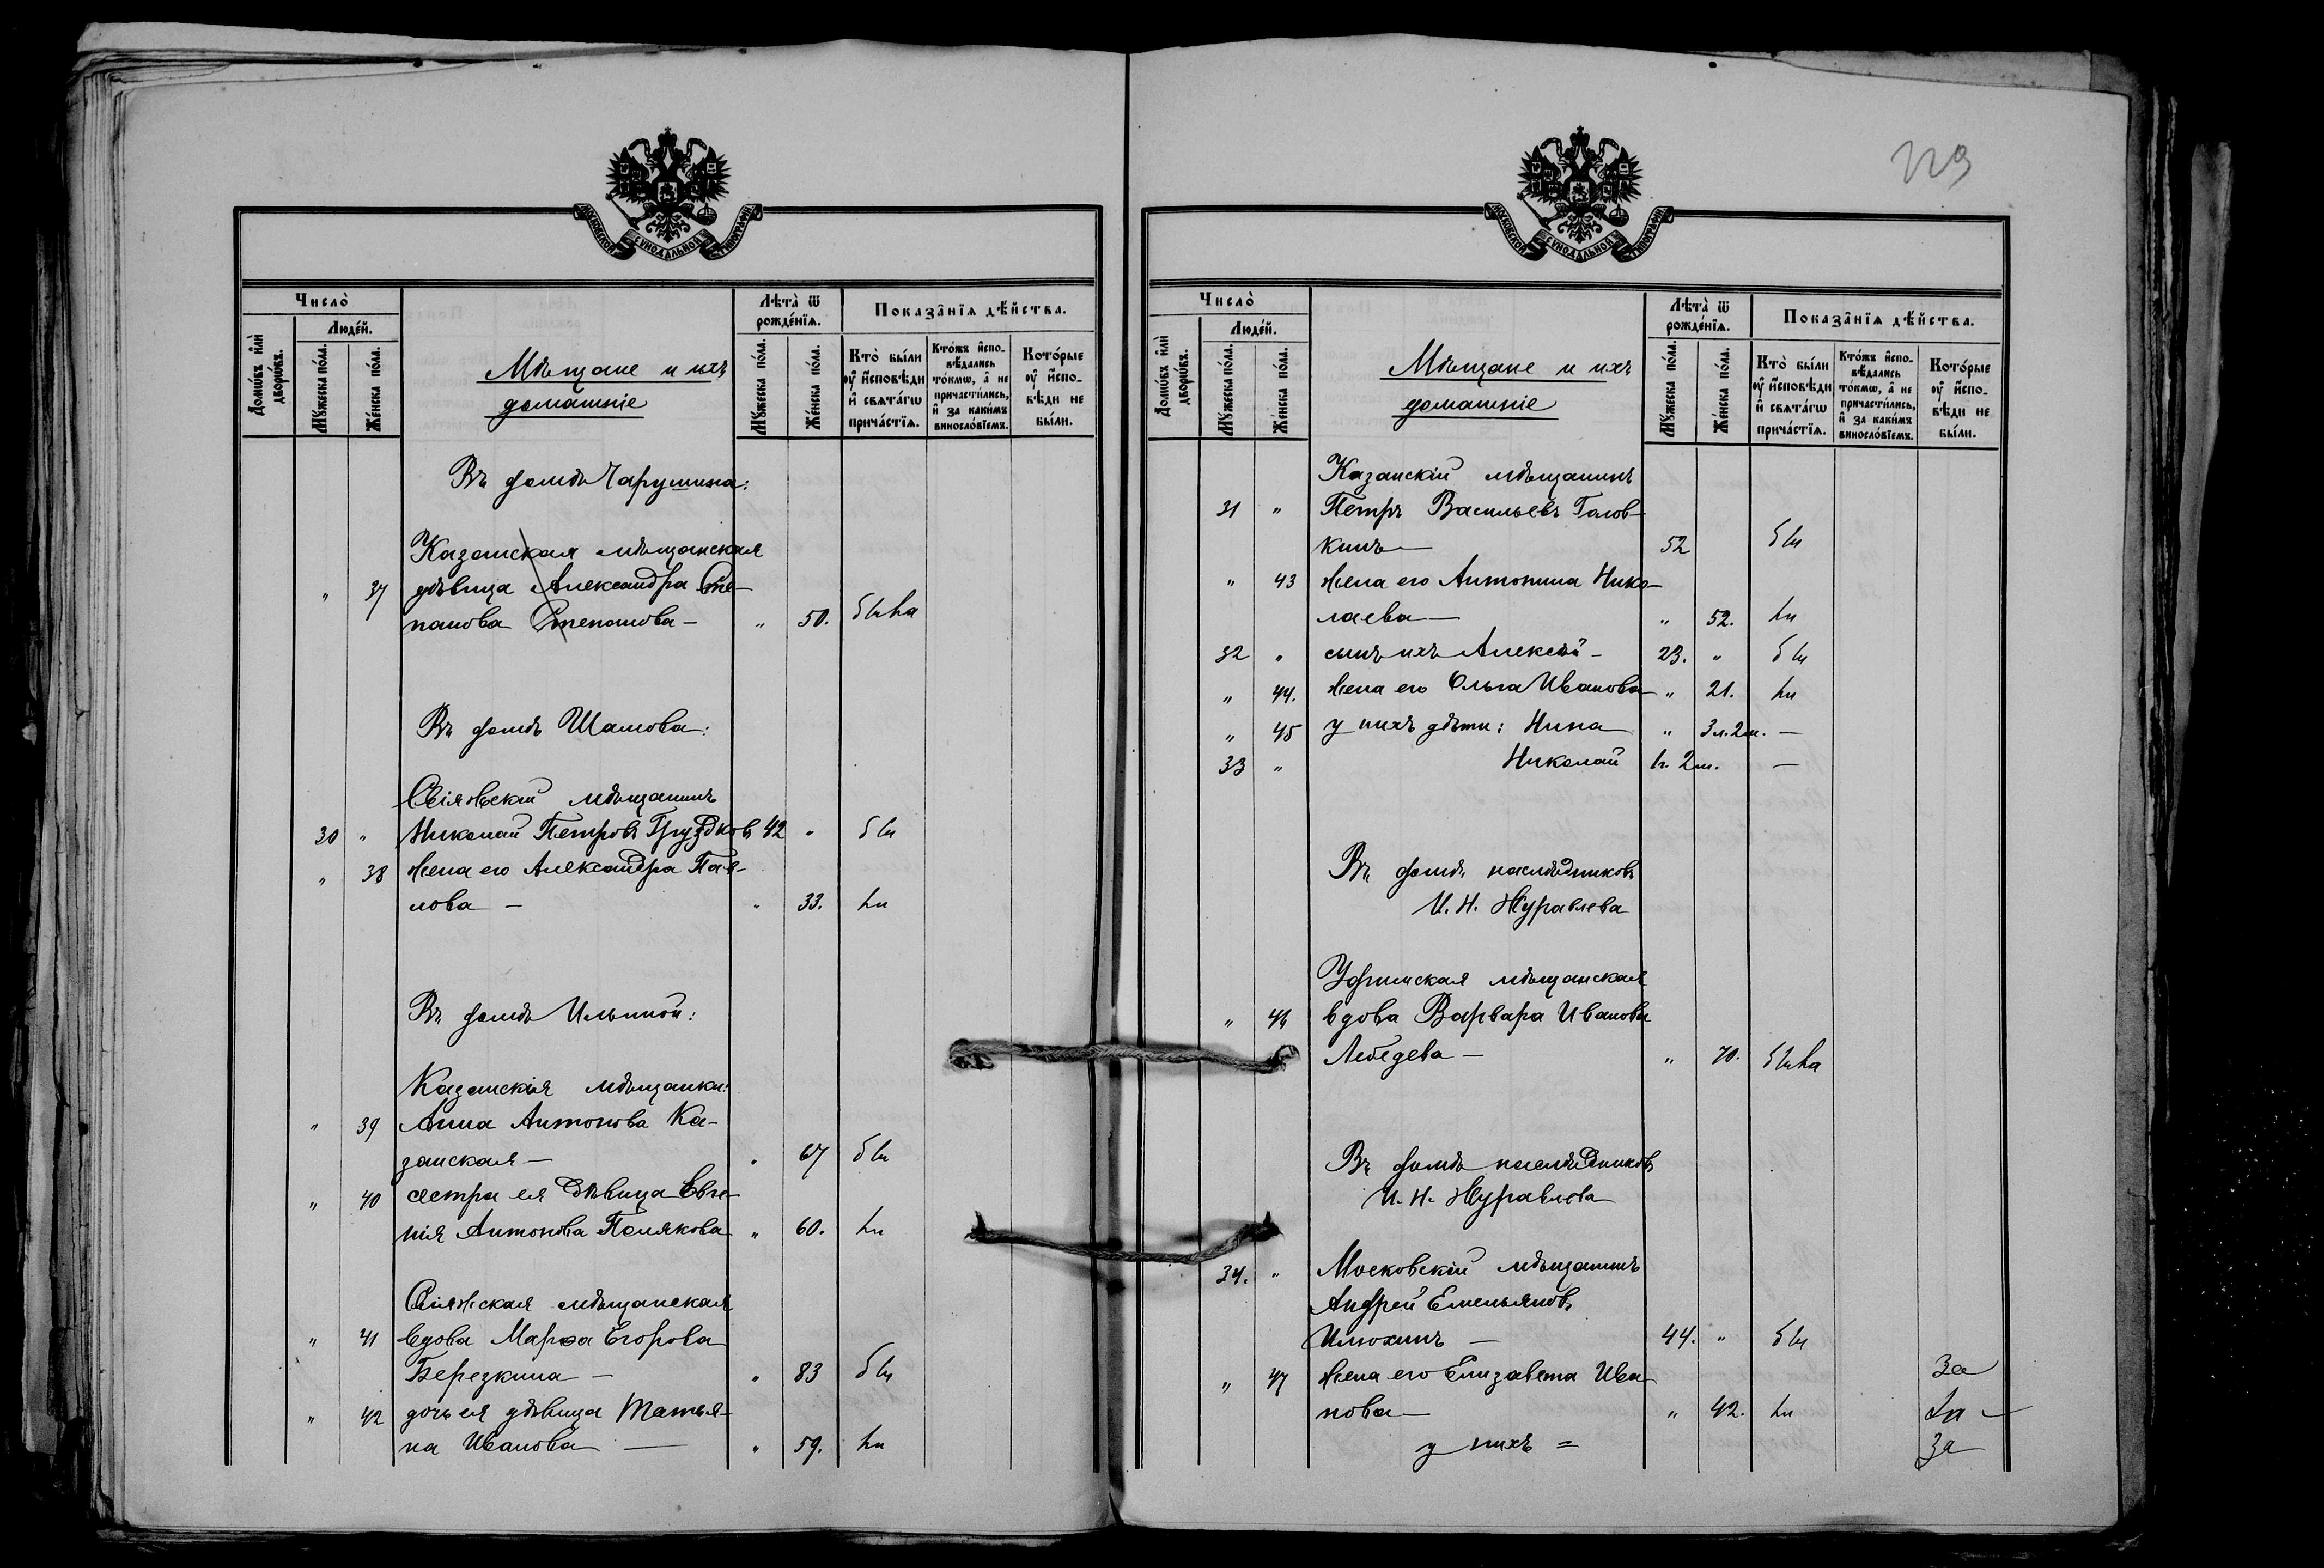 МОСКОВСКОЙ СУНОДАЛЬНОЙ ТИПОГРАФІИ
Число̀
Людѐй.
Домѡ́въ и҆лѝ дворѡ́въ.
Мꙋ́жеска по́ла.
Же́нска по́ла.
Мѣщане и ихъ
домашніе
Лѣта̀ ѿ рожде́нїѧ.
Мꙋ́жеска по́ла.
Же́нска по́ла.
Показа̑нїѧ дѣ́йства.
Кто̀ бы́ли оу҆ и҆сповѣди и҆ свѧта́гѡ прича́стїѧ.
Кто́жъ и҆спо-вѣдались то́кмѡ, а҆ не причасти́лись, и҆ за каки́мъ винословїемъ.
Кото́рые оу҆ и҆спо-вѣди не бы́ли.
Въ домѣ Чарушина:
Казанская мѣщанская
" 37 дѣвица Александра Сте-
панова Степанова — " 50.
Въ домѣ Шамова:
Свіяжскій мѣщанинъ
30 " Николай Петровъ Груздковъ 42 "
" 38 жена его Александра Пав-
лова — " 33.
Въ домѣ Ильиной:
Казанскія мѣщанки:
" 39 Анна Антонова Ка-
занская — " 67
" 40 сестра ея дѣвица Евге-
нія Антонова Полякова " 60.
Свіяжская мѣщанская
" 41 вдова Марѳа Егорова
Березкина — " 83
" 42 дочь ея дѣвица Татья-
на Иванова — " 59.
МОСКОВСКОЙ СУНОДАЛЬНОЙ ТИПОГРАФІИ
Число̀
Людѐй.
Домѡ́въ и҆лѝ дворѡ́въ.
Мꙋ́жеска по́ла.
Же́нска по́ла.
Мѣщане и ихъ
домашніе
Лѣта̀ ѿ рожде́нїѧ.
Мꙋ́жеска по́ла.
Же́нска по́ла.
Показа̑нїѧ дѣ́йства.
Кто̀ бы́ли оу҆ и҆сповѣди и҆ свѧта́гѡ прича́стїѧ.
Кто́жъ и҆спо-вѣдались то́кмѡ, а҆ не причасти́лись, и҆ за каки́мъ винословїемъ.
Кото́рые оу҆ и҆спо-вѣди не бы́ли.
Казанскій мѣщанинъ
31 " Петръ Васильевъ Голов-
кинъ — 52
" 43 жена его Антонина Нико-
лаева — " 52.
32 " сынъ ихъ Алексѣй — 23. "
" 44. жена его Ольга Иванова " 21.
" 45 у нихъ дѣти: Нина " 3 л. 2 м. —
33 " Николай 1 г. 2 м. —
Въ домѣ наслѣдниковъ
И. Н. Журавлева
Уфимская мѣщанская
" 46 вдова Варвара Иванова
Лебедева — " 70.
Въ домѣ наслѣдниковъ
И. Н. Журавлева
34. " Московскій мѣщанинъ
Андрей Емельяновъ
Илюхинъ — 44. "
" 47 жена его Елизавета Ива-
нова — " 42.
у нихъ =